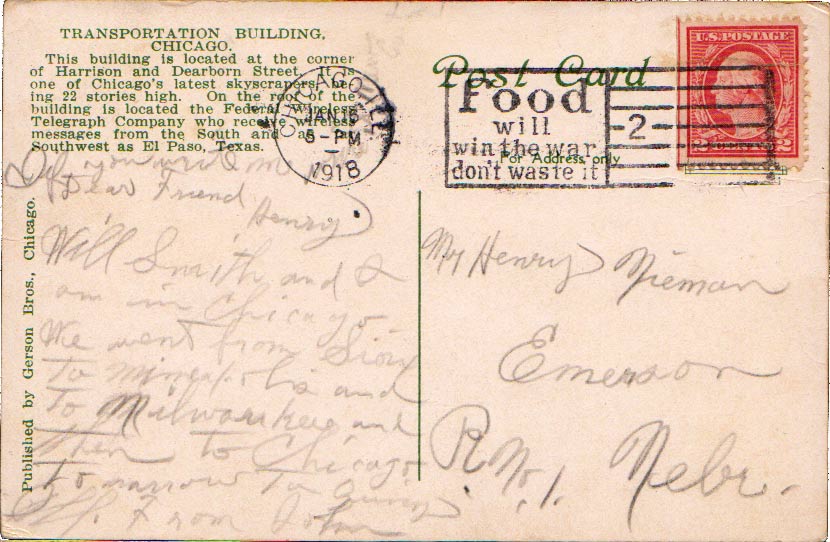 TRANSPORTATION BUILDING,
CHICAGO.
This building is located at the corner
of Harrison and Dearborn Street. It is
one of Chicago's latest skyscrapers, be-
ing 22 stories high. On the roof of the
building is located the Federal Wireless
Telegraph Company who receive wireless
messages from the South and as
Southwest as El Paso, Texas.
Published by Gerson Bros., Chicago.
Post Card
For Address only
CHICAGO, ILL
JAN 16
5-PM
1918
Food
will
win the war
don't waste it
2
U.S. POSTAGE
2 2
If you write
Dear Friend
Henry
Will Smith and I
am in Chicago
We went from Sioux
to Mineapolis and
to Milwaukee and
then to Chicago
tomarrow to
Ill. From John
Mr Henry Nieman
Emerson
R No. 1. Nebr.